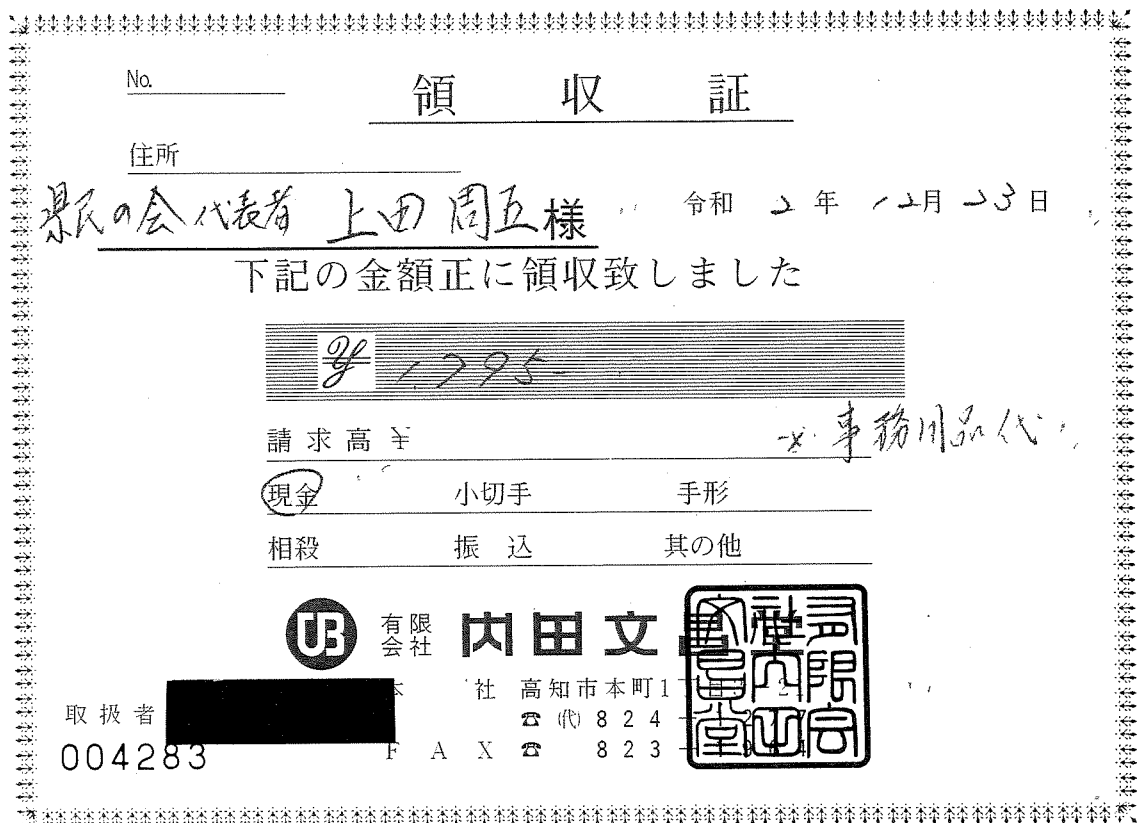 No.
領収証
住所
県民の会代表者 上田周五様
令和 2年 12月 23日
下記の金額正に領収致しました
¥ 1,795-
請求高¥
事務用品代
現金 小切手 手形
相殺 振込 其の他
UB 有限会社 内田文昌堂
本社 高知市本町1丁目
☎ ㈹ 824-
取扱者
FAX ☎ 823-
004283
有限会社内田文昌堂